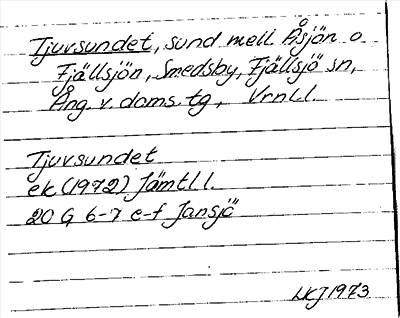 Tjuvsundet, sund mell. Åsjön o.
Fjällsjön, Smedsby, Fjällsjö sn,
Ång. v. doms. tg, Vrnl.l.
Tjuvsundet
ek (1972) Jämtl l.
20 G 6-7 e-f Jansjö
LKJ 1973